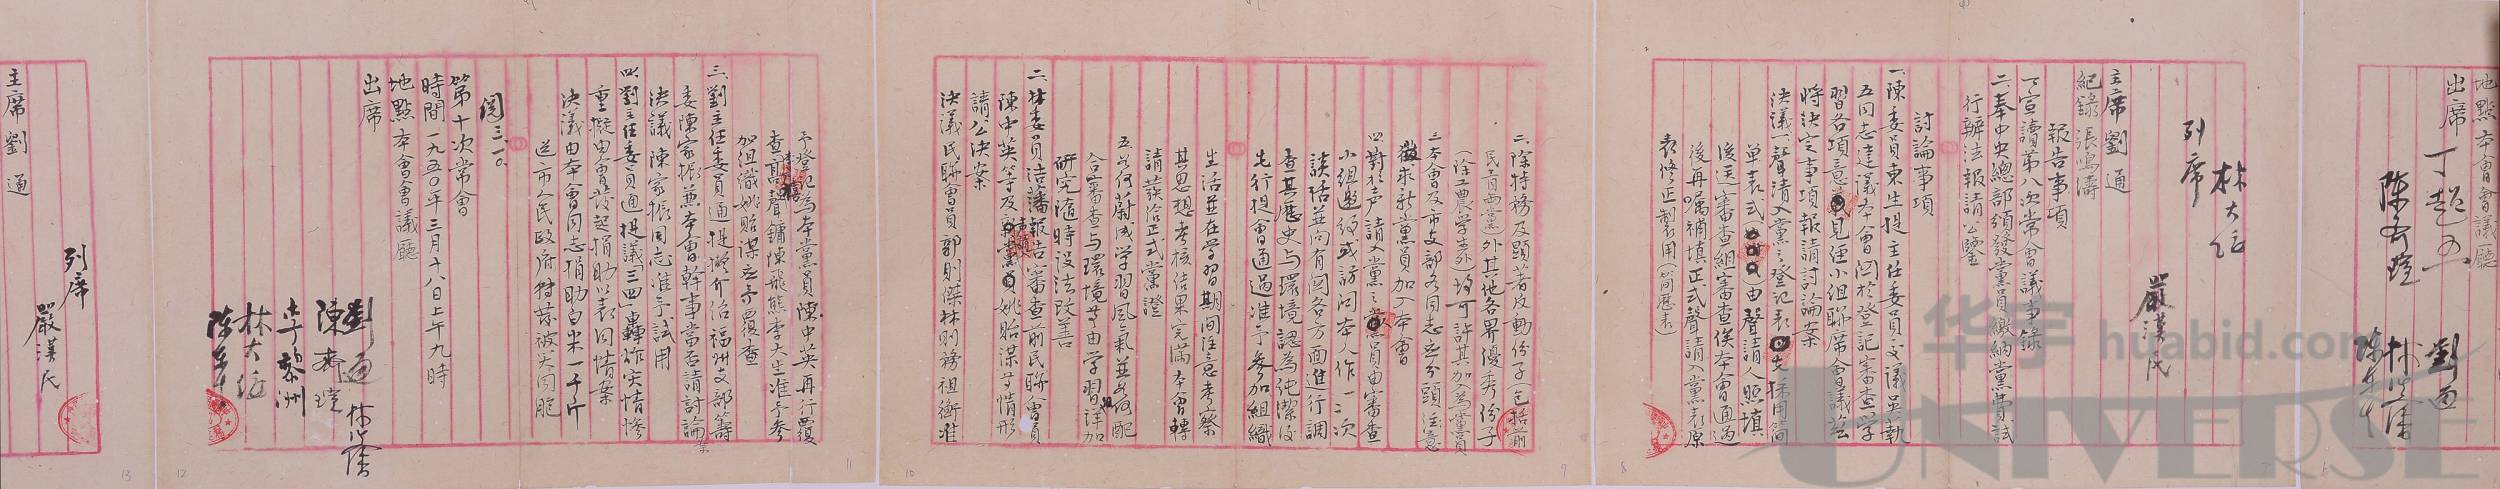 地點本會會議廳
出席 丁超五 劉通
陳齊瑄
列席 林大任
嚴漢民
主席 劉通
紀錄 張鳴濤
報告事項
一、宣讀第八次常會議事錄
二、奉中央總部頒發黨員繳納黨費試
行辦法報請公鑒
討論事項
一、陳委員東生提主任委員交議吳執
五同志建議本會関於登記審查學
習各項意見經小組聯席會議茲
將決定事項報請討論案
決議一聲請入黨之登記表先採用簡
單表式由聲請人照填
後送審查組審查俟本會通過
後再囑補填正式聲請入黨表原
表修正製用(簡歷表)
二、除特務及顕著反動份子(包括前
民青两黨)外其他各界優秀份子
(除工農学生外)均可許其加入為黨員
三、本會及市支部各同志应分頭注意
徵求新黨員加入本會
四、對於声請入黨之黨員由審查
小組邀约或訪问本人作一二次
談話並向有関各方面進行調
查其歷史与環境認為純潔後
先行提會通過准予參加組織
生活並在学習期间注意考察
其思想考核结果完满本會轉
請發給正式黨證
五、如何蔚成学習風氣並如何配
合審查与環境等由学習組详加
研究隨時设法改善
二、林委員浩藩報告審查前民聯會員
陳中英等及新黨員姚貽谋等情形
請公決案
決議民聯會員郭則傑林则務祖衡准
予登記為本黨員陳中英再行覆
查高聲鏞陳飛熊李大生准予參
加組織姚貽谋应予覆查
三、劉主任委員通提擬介绍福州支部籌
委陳家振兼本會幹事當否請討論案
決議 陳家振同志准予試用
四、劉主任委員通提議三四轟炸灾情惨
重擬由會發起捐助以表同情案
決議由本會同志捐助白米一千斤
送市人民政府轉救被灾同胞
閱 三、一〇
第十次常會
時間一九五〇年三月十八日上午九時
地點本會會議廳
出席
劉通 林浩藩
陳齊瑄
李黎洲
林大任
陳東生
列席
嚴漢民
主席 劉通
13
12
11
10
9
8
7
华宇 huabid.com
UNIVERSE